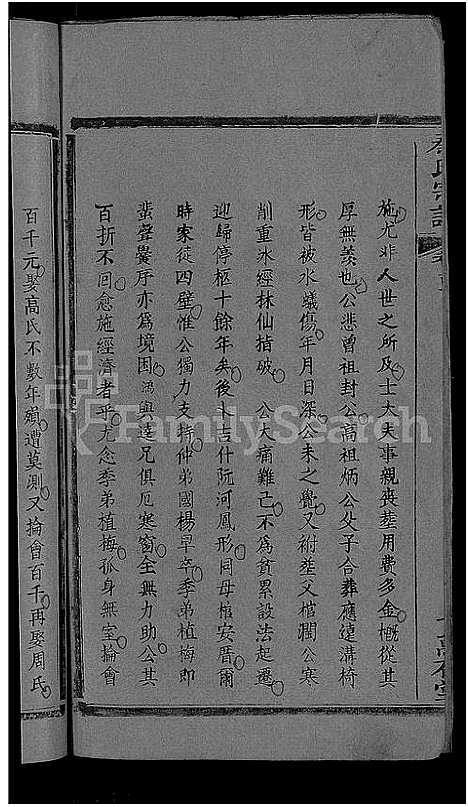 施尤非人世之所及士大夫事親喪葬用費多金概從其
厚無羨也公悲曾祖封公高祖炳公父子合葬應遠溝椅
形皆被水蟻傷年月日深公未之覺又祔葬父棺閫公寒
削重水經林仙指破 公大痛難已不為貧累設法起遷
迎歸停柩十餘年矣後卜吉什阮河鳳形同母棺安厝爾
時家徒四壁惟公獨力支持仲弟國楊早卒季弟植梅即
蜚聲黌序亦為境困鴻與達兄俱厄寒窗全無力助公其
百折不回愈施經濟者乎尤念季弟植梅孤身無室掄會
百千元娶高氏不數年嶺遭莫測又掄會百千再娶周氏
氏宗譜
FamilySearch